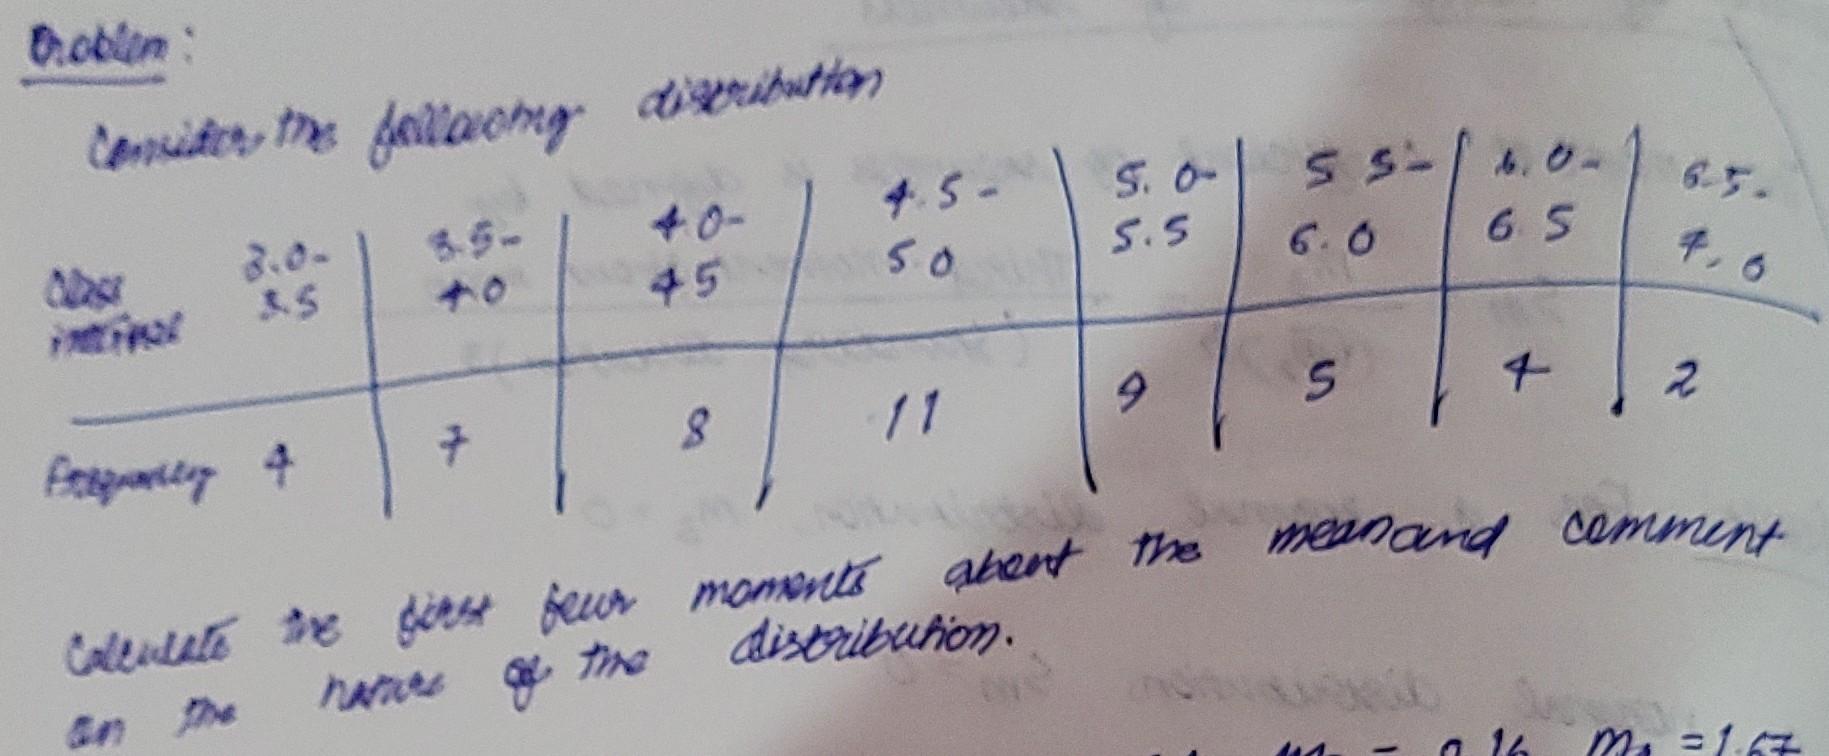 Problem:
Consider the following distribution
Class interval 3.0-3.5 3.5-4.0 4.0-4.5 4.5-5.0 5.0-5.5 5.5-6.0 6.0-6.5 6.5-7.0
Frequency 4 7 8 11 9 5 4 2
Calculate the first four moments about the mean and comment
on the nature of the distribution.
= 0.16 = 1.67